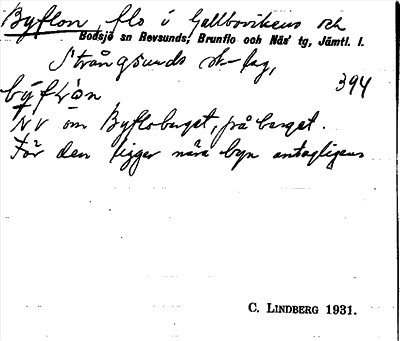 Byflon, flo i Gallbovikens och
Bodsjö sn Revsunds, Brunflo och Näs' tg, Jämtl. l.
Strångsunds sk-lag,
394
býflòn
NV om Byfloberget, på berget.
För den ligger nära byn antagligen
C. LINDBERG 1931.